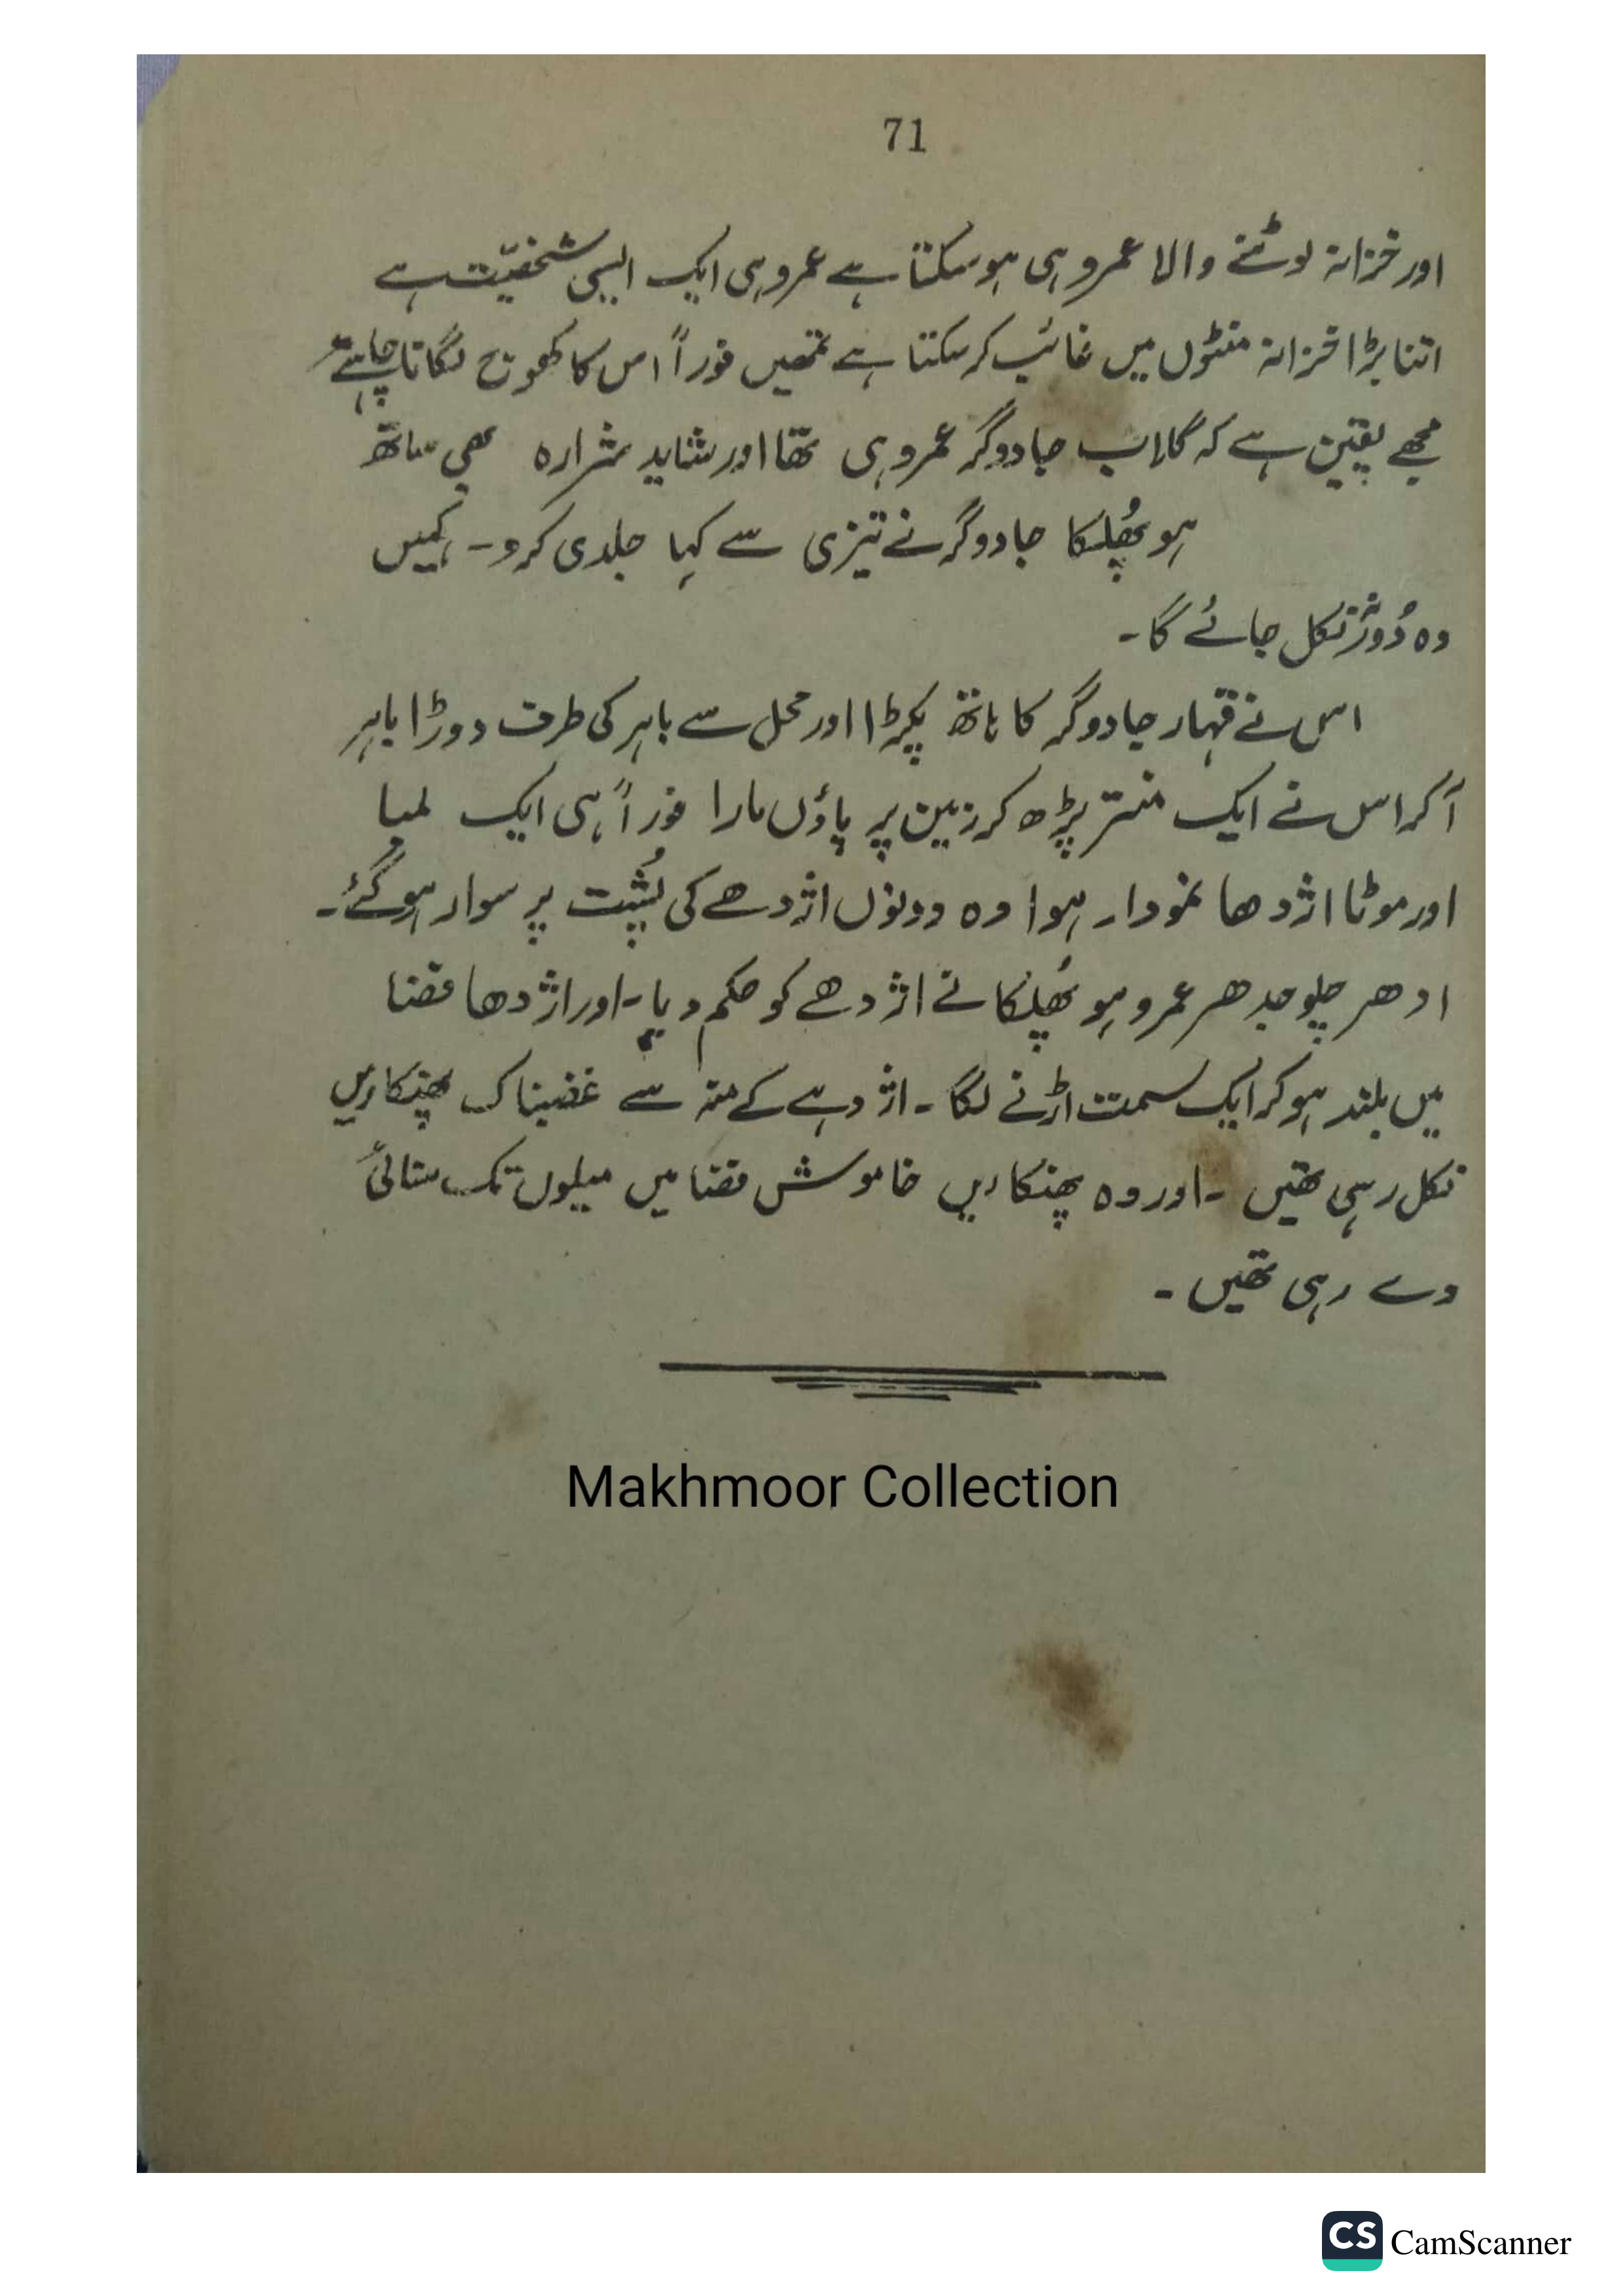 71
اور خزانہ لوٹنے والا عمرو ہی ہو سکتا ہے عمرو ہی ایک ایسی شخصیّت ہے
اتنا بڑا خزانہ منٹوں میں غائب کر سکتا ہے تمھیں فوراً اس کا کھوج لگانا چاہیئے
مجھے یقین ہے کہ گلاب جادوگر عمرو ہی تھا اور شاید شرارہ بھی ساتھ
ہو پھُلکا جادوگر نے تیزی سے کہا جلدی کرو۔ کہیں
وہ دُور نکل جائے گا۔
اس نے قہار جادوگر کا ہاتھ پکڑا اور محل سے باہر کی طرف دوڑا باہر
آ کر اس نے ایک منتر پڑھ کر زمین پر پاؤں مارا فوراً ہی ایک لمبا
اور موٹا اژدھا نمودار ہوا وہ دونوں اژدھے کی پُشت پر سوار ہو گئے۔
ادھر چلو جدھر عمرو ہو پھُلکا نے اژدھے کو حکم دیا۔ اور اژدھا فضا
میں بلند ہو کر ایک سمت اڑنے لگا۔ اژدہے کے منہ سے غضبناک پھنکاریں
نکل رہی تھیں۔ اور وہ پھنکاریں خاموش فضا میں میلوں تک سنائی
دے رہی تھیں۔
Makhmoor Collection
CS CamScanner